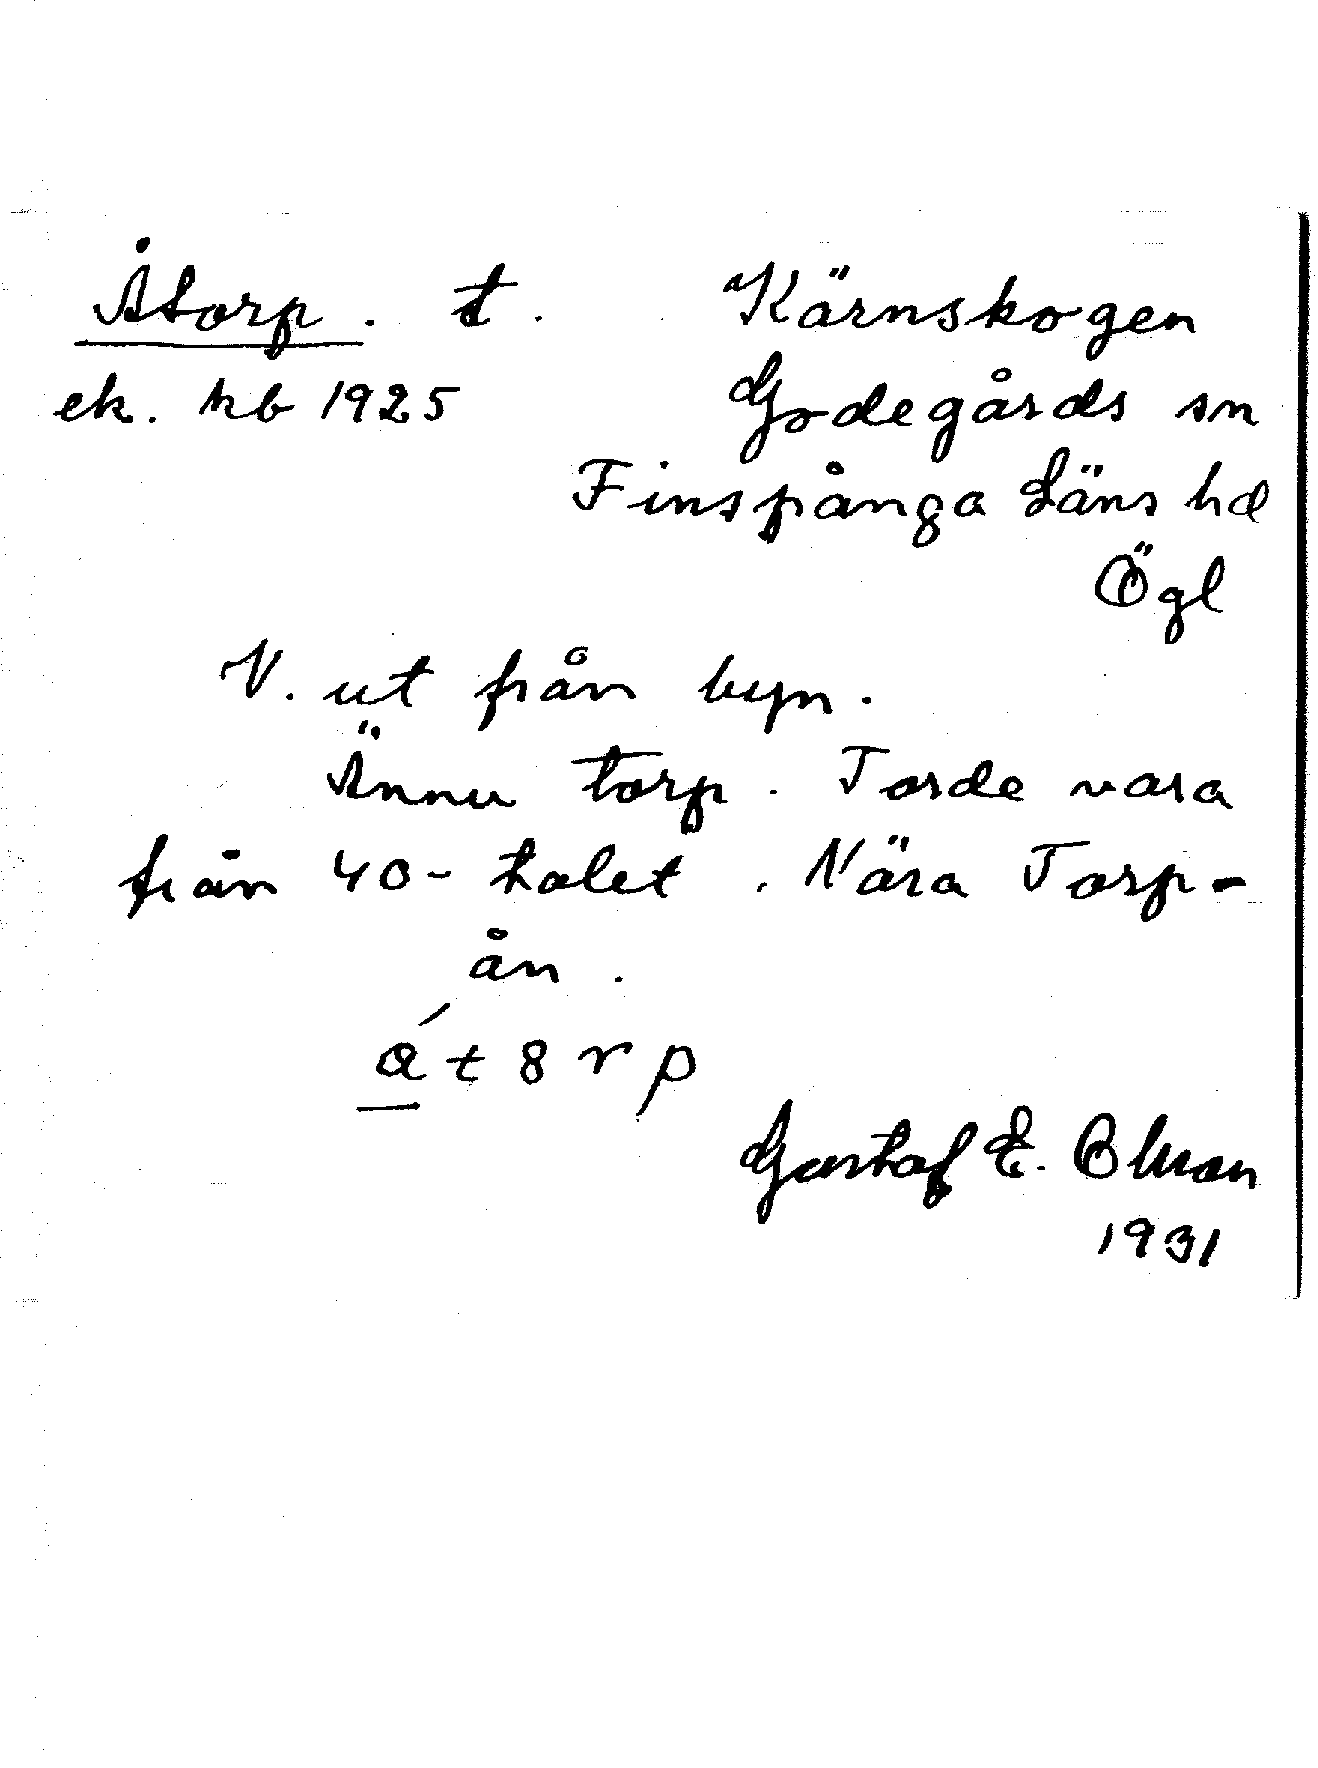 Åtorp. t. Kärnskogen
ek. kb 1925 Godegårds sn
Finspånga Läns hd
Ögl
V. ut från byn.
Ännu torp. Torde vara
från 40-talet. Nära Torp-
ån.
á t 8 r p
Gustaf E. Olson
1931